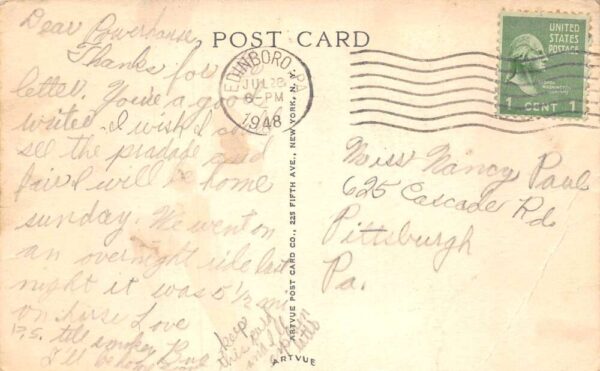 POST CARD
EDINBORO, PA.
JUL 28
6-PM
1948
UNITED
STATES
POSTAGE
1 CENT 1
Dear Powerhouse
Thanks for
letter. You're a good
writer. I wish I could
see the pradade and
fair I will be home
sunday. We went on
an overnight ride last
night it was 5 1/2
on horse Love
P.S. tell
I'll be home
keep
this card
and I'll
Miss Nancy Paul
625 Cascade Rd
Pittsburgh
Pa.
ARTVUE POST CARD CO., 225 FIFTH AVE., NEW YORK, N. Y.
ARTVUE